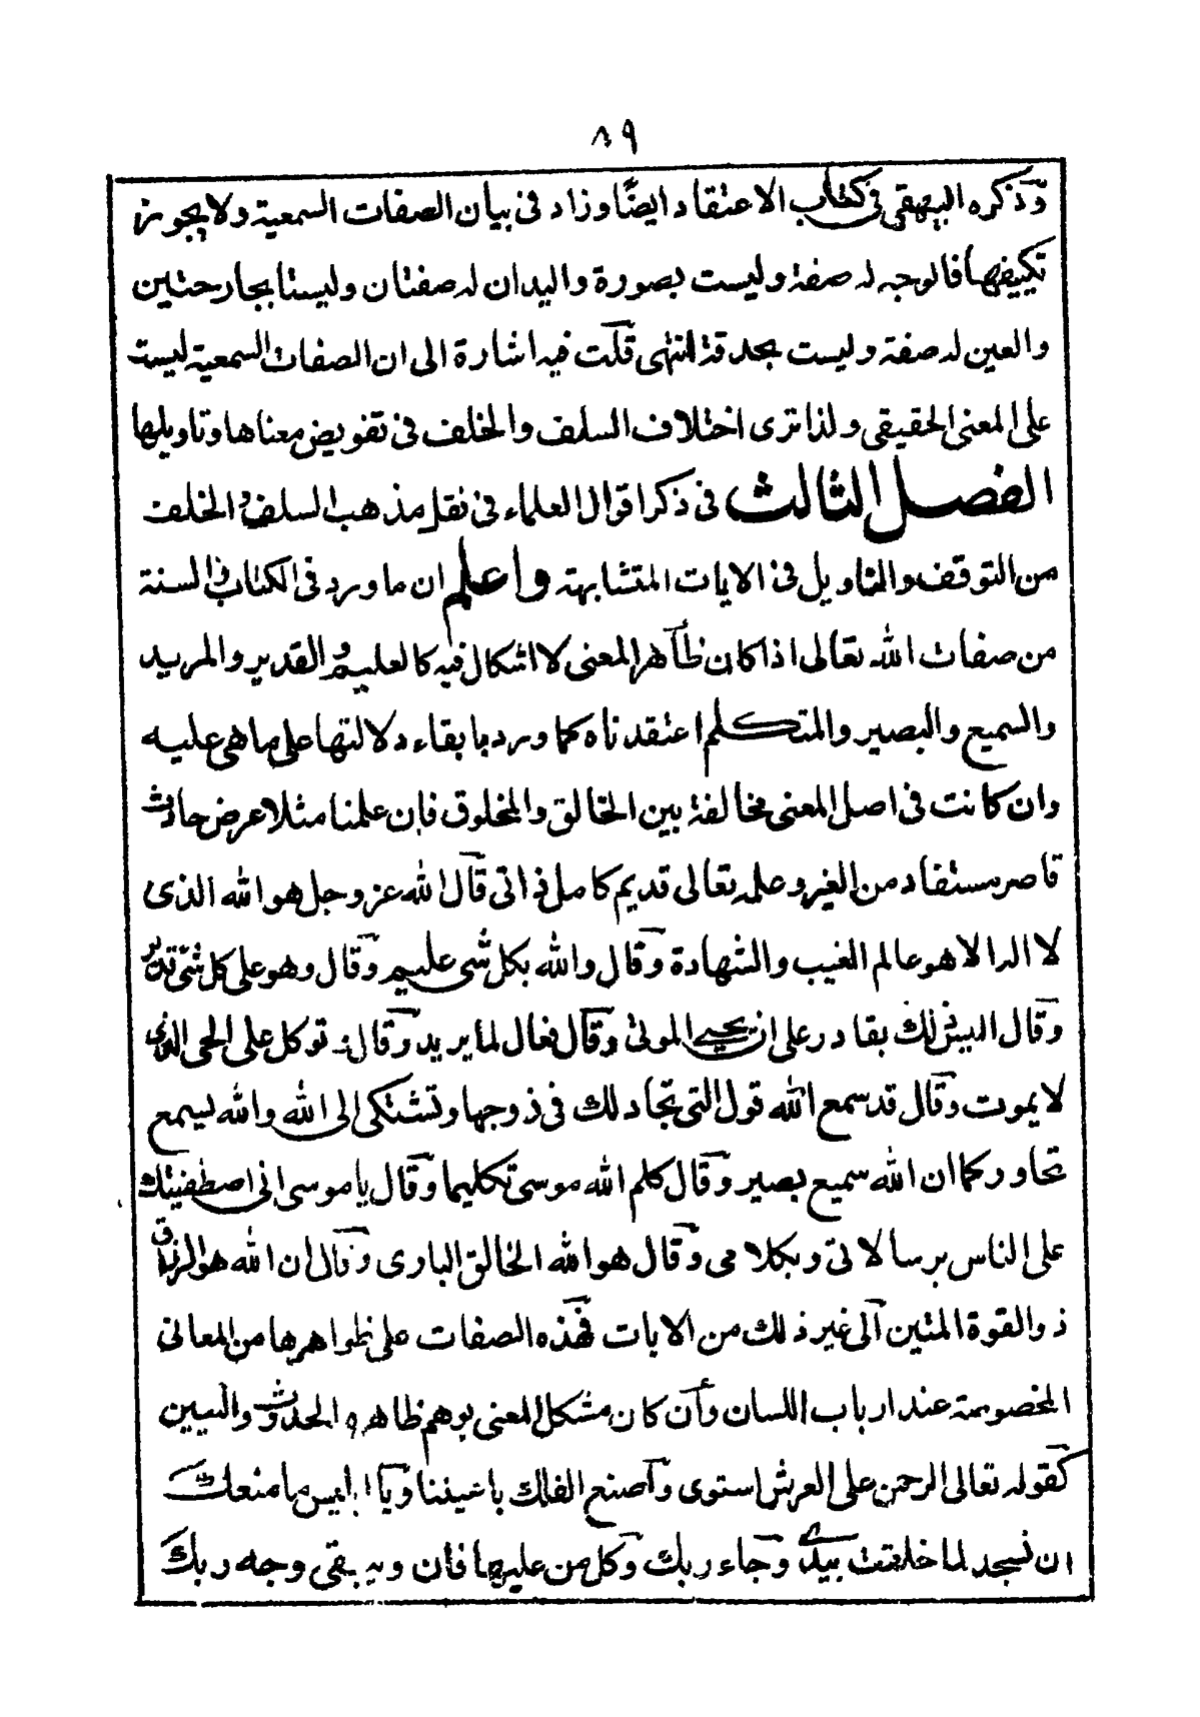 ٨٩
وذكره البيهقى فى كتاب الاعتقاد ايضًا وزاد فى بيان الصفات السمعية ولا يجوز
تكييفها فالوجه له صفة وليست بصورة واليدان له صفتان وليستا بجارحتين
والعين له صفة وليست بحدقة انتهى قلت فيه اشارة الى ان الصفات السمعية ليست
على المعنى الحقيقى ولذا ترى اختلاف السلف والخلف فى تفويض معناها وتاويلها
الفصل الثالث فى ذكر اقوال العلماء فى نقل مذهب السلف والخلف
من التوقف والتاويل فى الايات المتشابهة واعلم ان ما ورد فى الكتاب والسنة
من صفات الله تعالى اذا كان ظاهر المعنى لا اشكال فيه كالعليم والقدير والمريد
والسميع والبصير والمتكلم اعتقدناه كما ورد با بقاء دلالتها على ما هى عليه
وان كانت فى اصل المعنى مخالفة بين الخالق والمخلوق فان علمنا مثلا عرض حادث
قاصر مستفاد من الغير وعلمه تعالى قديم كامل ذاتى قال الله عز وجل هو الله الذى
لا اله الا هو عالم الغيب والشهادة وقال والله بكل شى عليم وقال وهو على كل شئ قدير
وقال اليس ذلك بقادر على ان يحيى الموتى وقال فعال لما يريد وقال توكل على الحى الذى
لا يموت وقال قد سمع الله قول التى تجادلك فى زوجها وتشتكى الى الله والله يسمع
تحاوركما ان الله سميع بصير وقال كلم الله موسى تكليما وقال يا موسى انى اصطفيتك
على الناس برسالاتى وبكلامى وقال هو الله الخالق البارى وقال ان الله هو الرزاق
ذو القوة المتين الى غير ذلك من الايات فهذه الصفات على ظواهرها من المعانى
المخصوصة عند ارباب اللسان وأن كان مشكل المعنى يوهم ظاهره الحدوث والتبيين
كقوله تعالى الرحمن على العرش استوى واصنع الفلك باعيننا ويا ابليس ما منعك
ان تسجد لما خلقت بيدى وجاء ربك وكل من عليها فان ويبقى وجه ربك